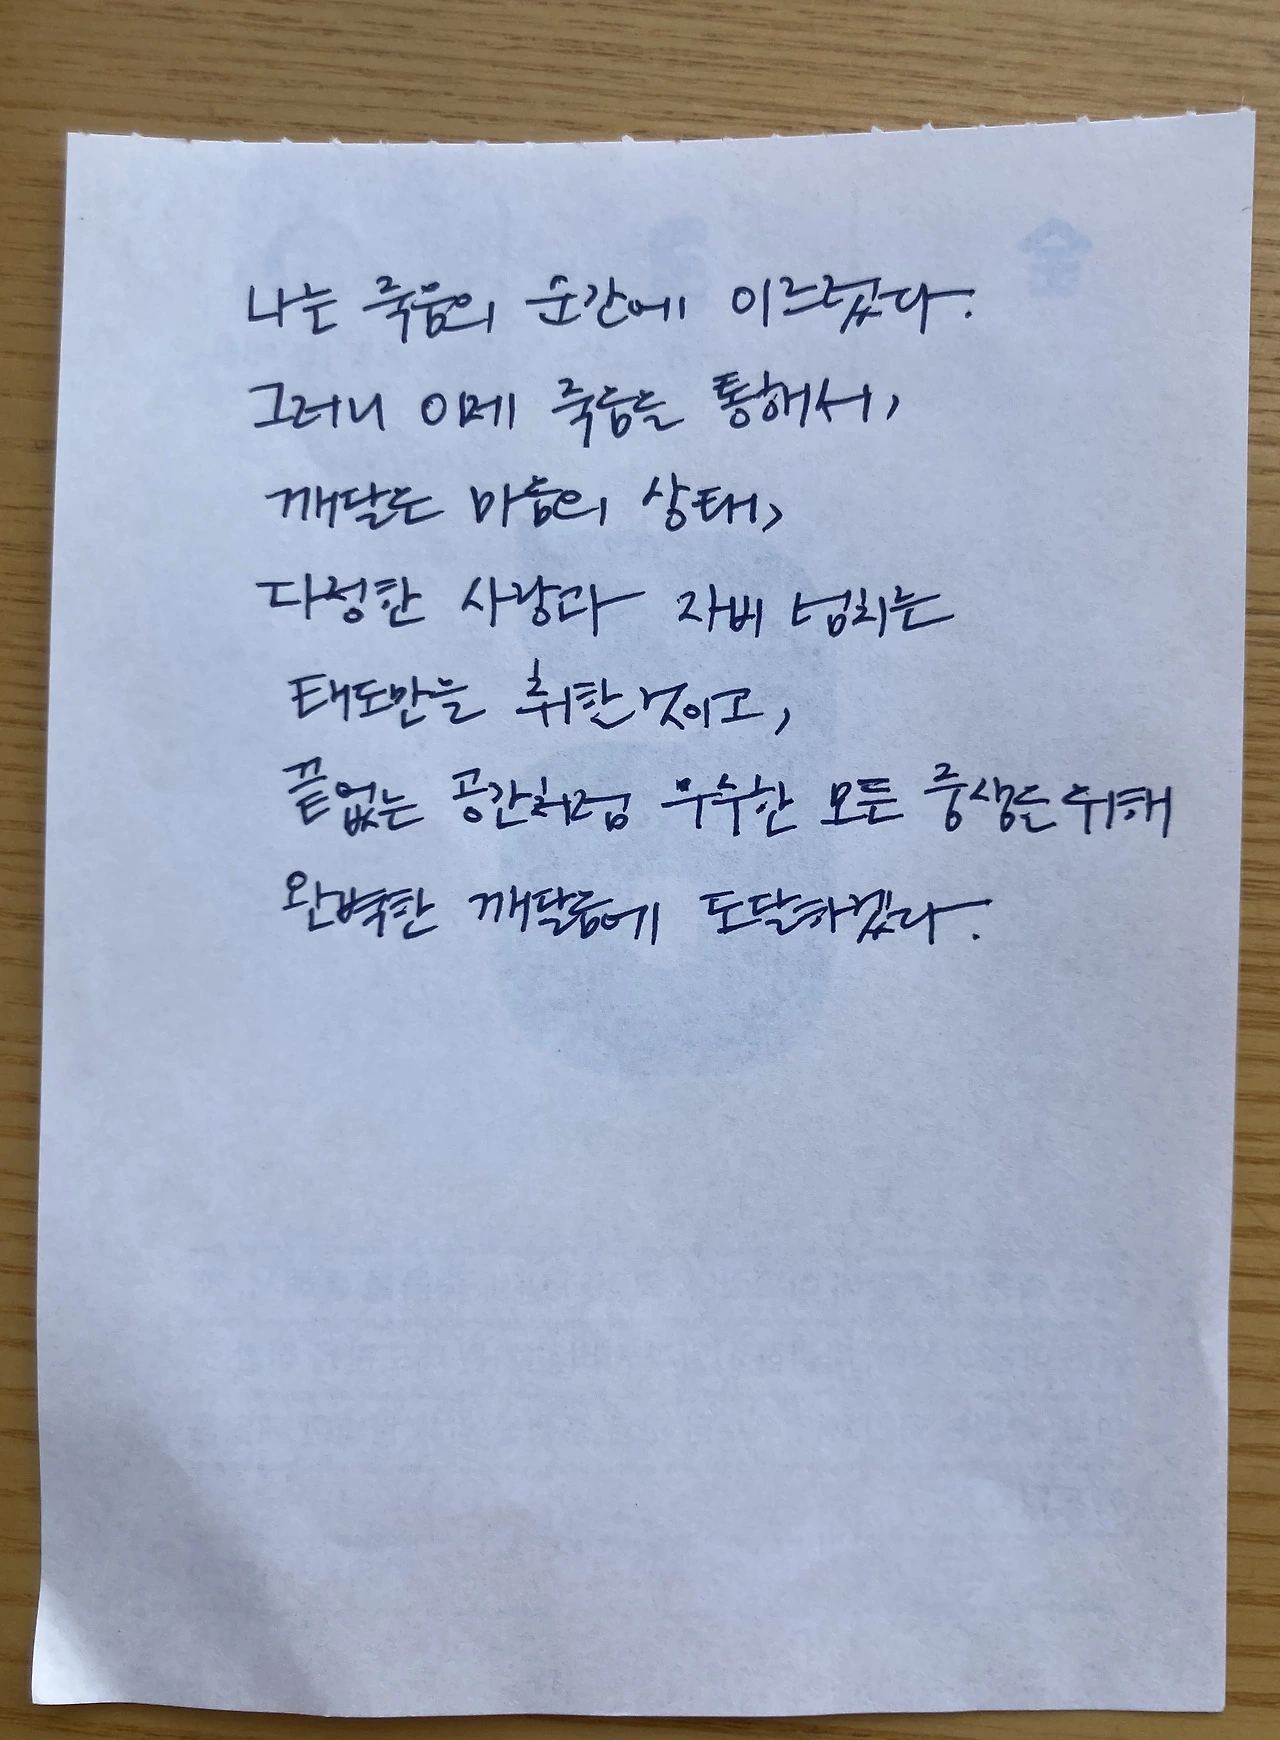 나는 죽음의 순간에 이르렀다.
그러니 이제 죽음을 통해서,
깨달은 마음의 상태,
다정한 사랑과 자비 넘치는
태도만을 취할 것이고,
끝없는 공간처럼 무수한 모든 중생을 위해
완벽한 깨달음에 도달하겠다.